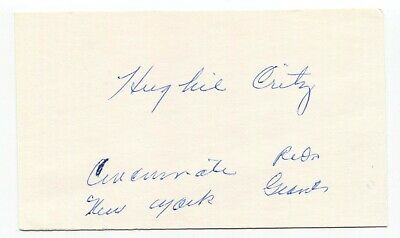 Hughie Critz
Cincinnati Reds
New York Giants